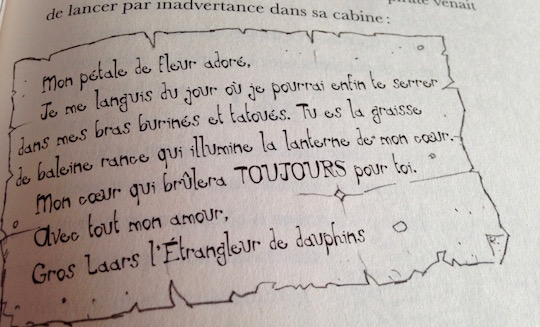 pirate venait
de lancer par inadvertance dans sa cabine :
Mon pétale de fleur adoré,
Je me languis du jour où je pourrai enfin te serrer
dans mes bras burinés et tatoués. Tu es la graisse
de baleine rance qui illumine la lanterne de mon cœur.
Mon cœur qui brûlera TOUJOURS pour toi.
Avec tout mon amour,
Gros Laars l'Étrangleur de dauphins